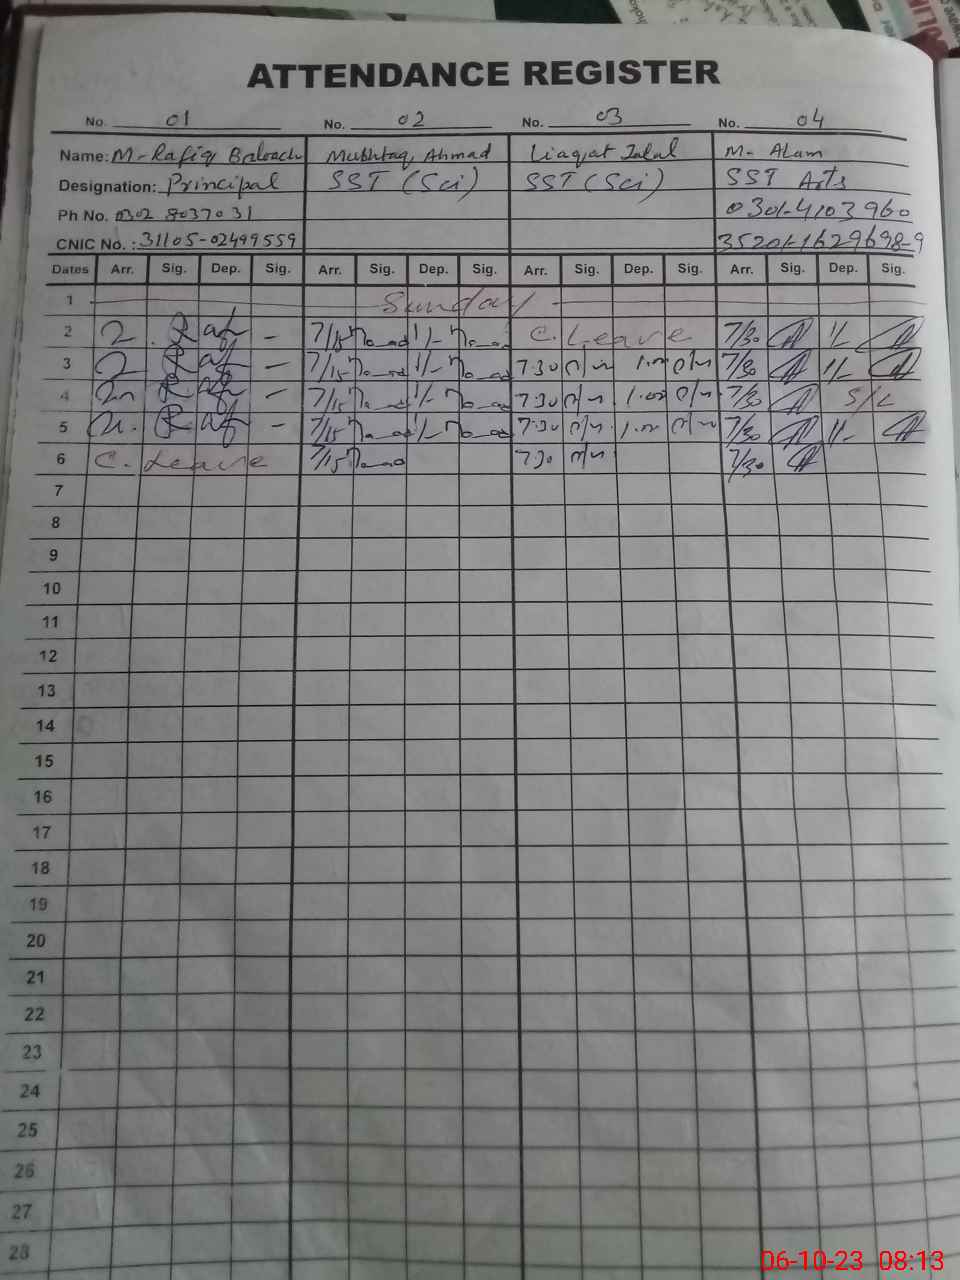 ATTENDANCE REGISTER
No. 01 No. 02 No. 03 No. 04
Name: M-Rafiq Baloach Mukhtaq Ahmad Liaqat Jalal M- Alam
Designation: Principal SST (Sci) SST (Sci) SST Arts
Ph No. 0302 8037031 0301-4103960
CNIC No.: 31105-02499559 35201-1629698-9
Dates Arr. Sig. Dep. Sig. Arr. Sig. Dep. Sig. Arr. Sig. Dep. Sig. Arr. Sig. Dep. Sig.
1 Sunday
2 - 7/15 1/- C. Leave 7/30 1/-
3 - 7/15 1/- 7:30 1.00 7/30 1/-
4 - 7/15 1/- 7:30 1.00 7/30 S/L
5 - 7/15 1/- 7:30 1.00 7/30 1/-
6 C. Leave 7/15 7:30 7/30
7
8
9
10
11
12
13
14
15
16
17
18
19
20
21
22
23
24
25
26
27
28
06-10-23 08:13